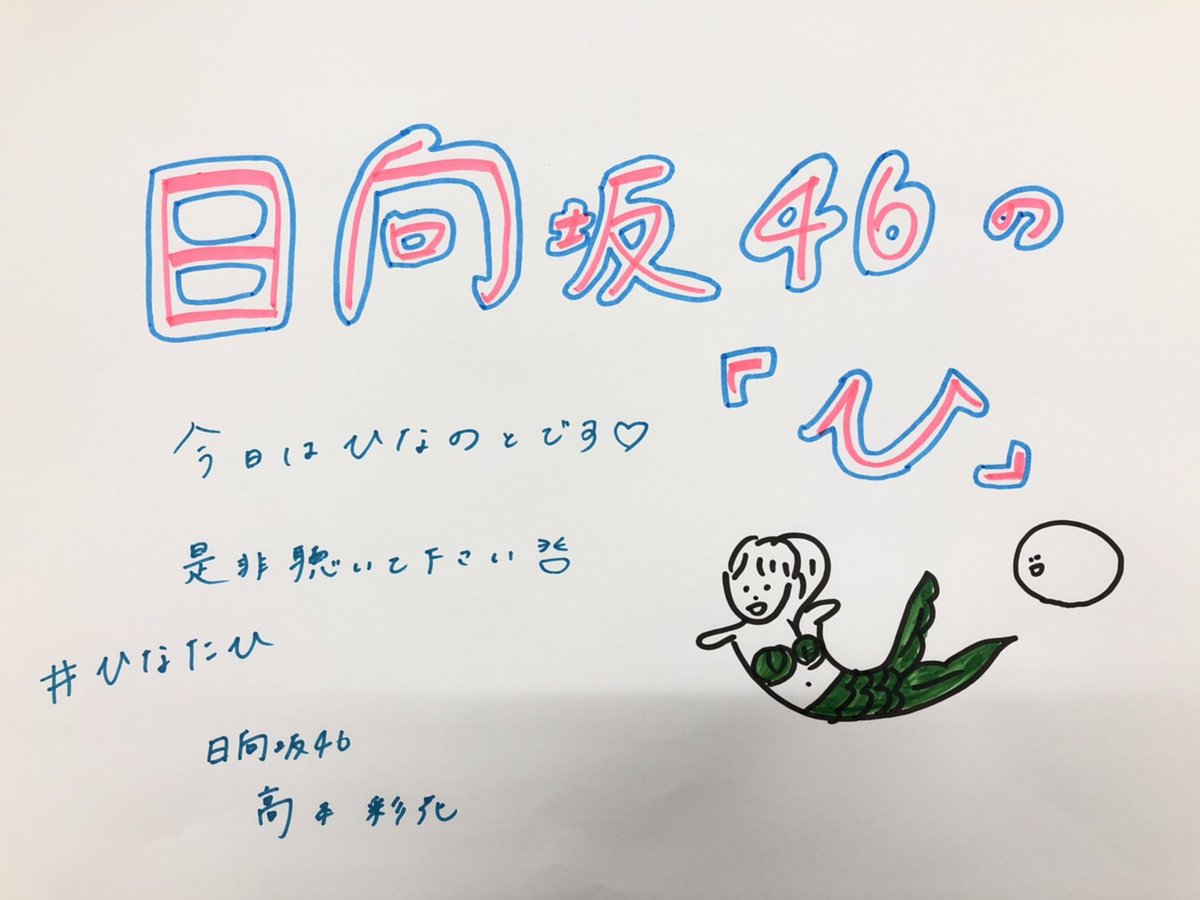 日向坂46の
『ひ』
今日はひなのとです♡
是非聴いて下さい
#ひなたひ
日向坂46
高本彩花